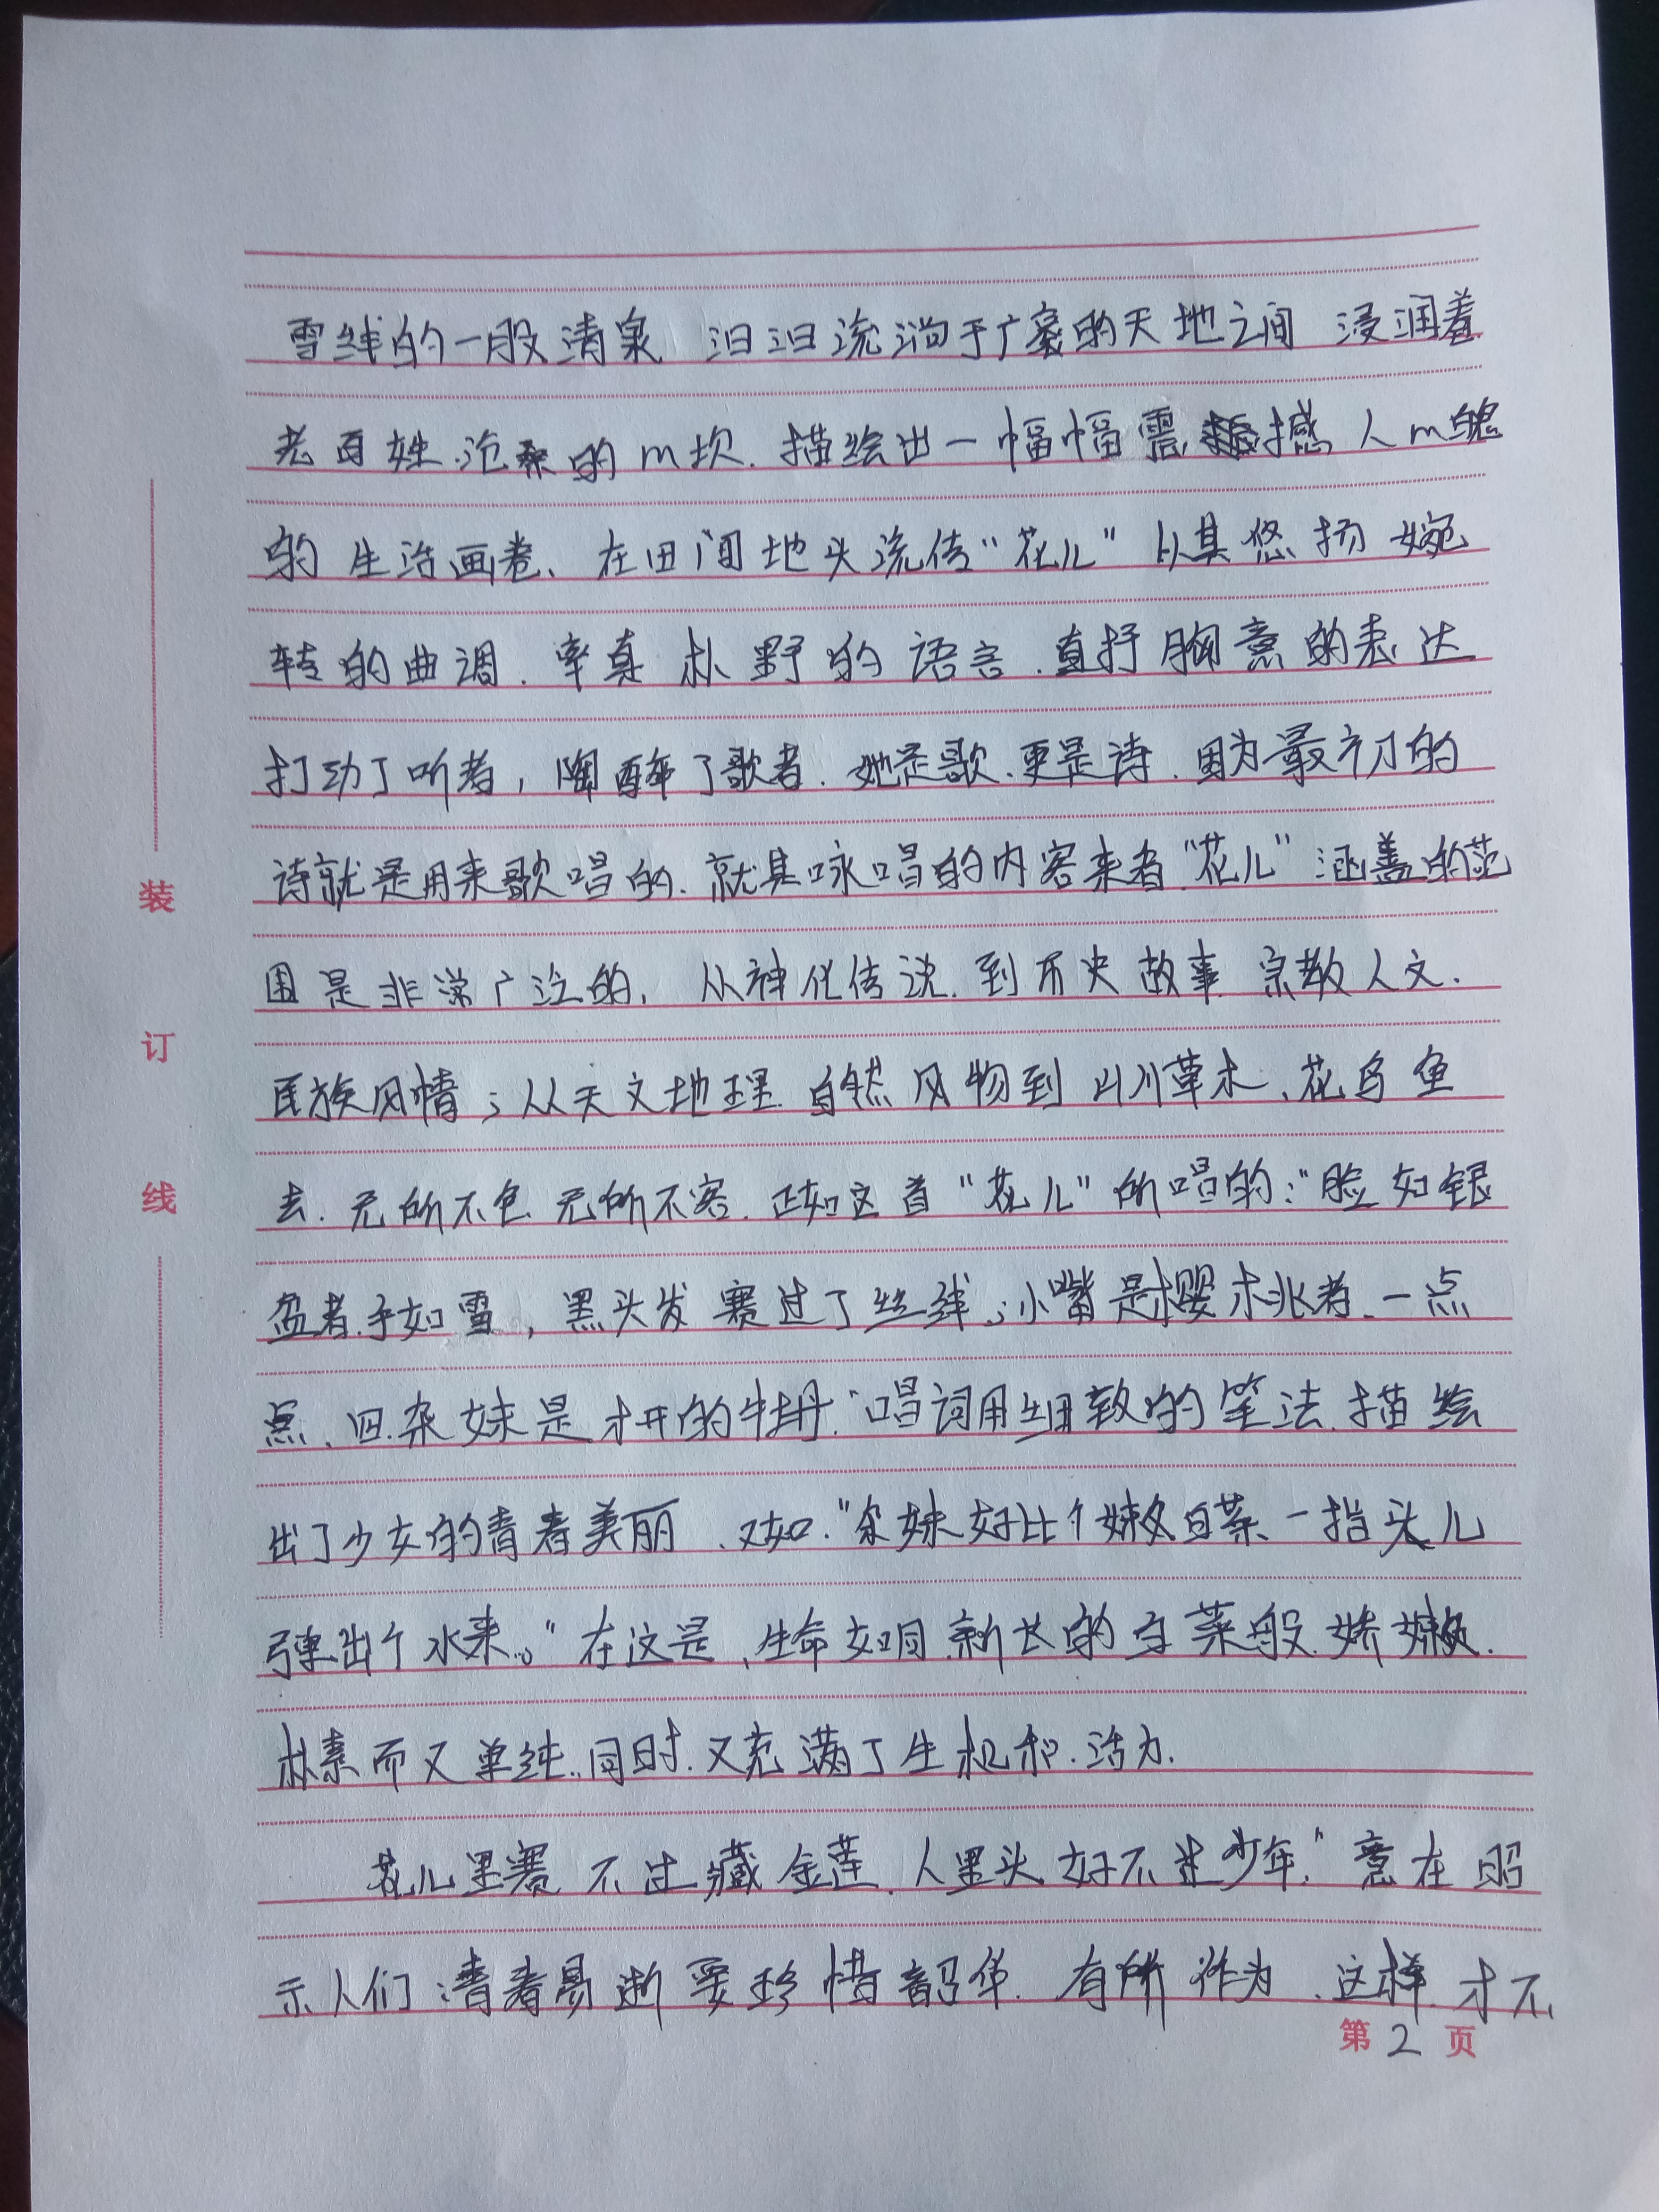 雪绛的一股清泉 汩汩流淌于广袤的天地之间 浸润着
老百姓.沧桑的m坎.描绘出一幅幅震撼人m魄
的生活画卷、在田间地头流传“花儿”以其悠扬婉
转的曲调.率真朴野的语言.直抒胸意的表达
打动了听者,陶醉了歌者.她是歌.更是诗.因为最初的
诗就是用来歌唱的.就其咏唱的内容来看“花儿”涵盖的范
围是非常广泛的,从神化传说.到历史故事 宗教人文.
民族风情;从天文地理.自然风物到山川草木、花鸟鱼
去.无所不包 无所不容.正如这首“花儿”所唱的:“脸如银
盆者.手如雪,黑头发赛过了丝线;小嘴是樱桃者.一点
点、四.杂妹是才开的牡丹.”唱词用细致的笔法.描绘
出了少女的青春美丽.又如.“尕妹好比个嫩白菜.一指头儿
弹出个水来。”在这是,生命如同新长的白菜般.娇嫩.
朴素而又单纯..同时.又充满了生机和.活力.
花儿里赛不过藏金莲.人里头好不过少年.”意在昭
示人们:青春易逝 要珍惜韶华.有所作为.这样.才不
装
订
线
第2页